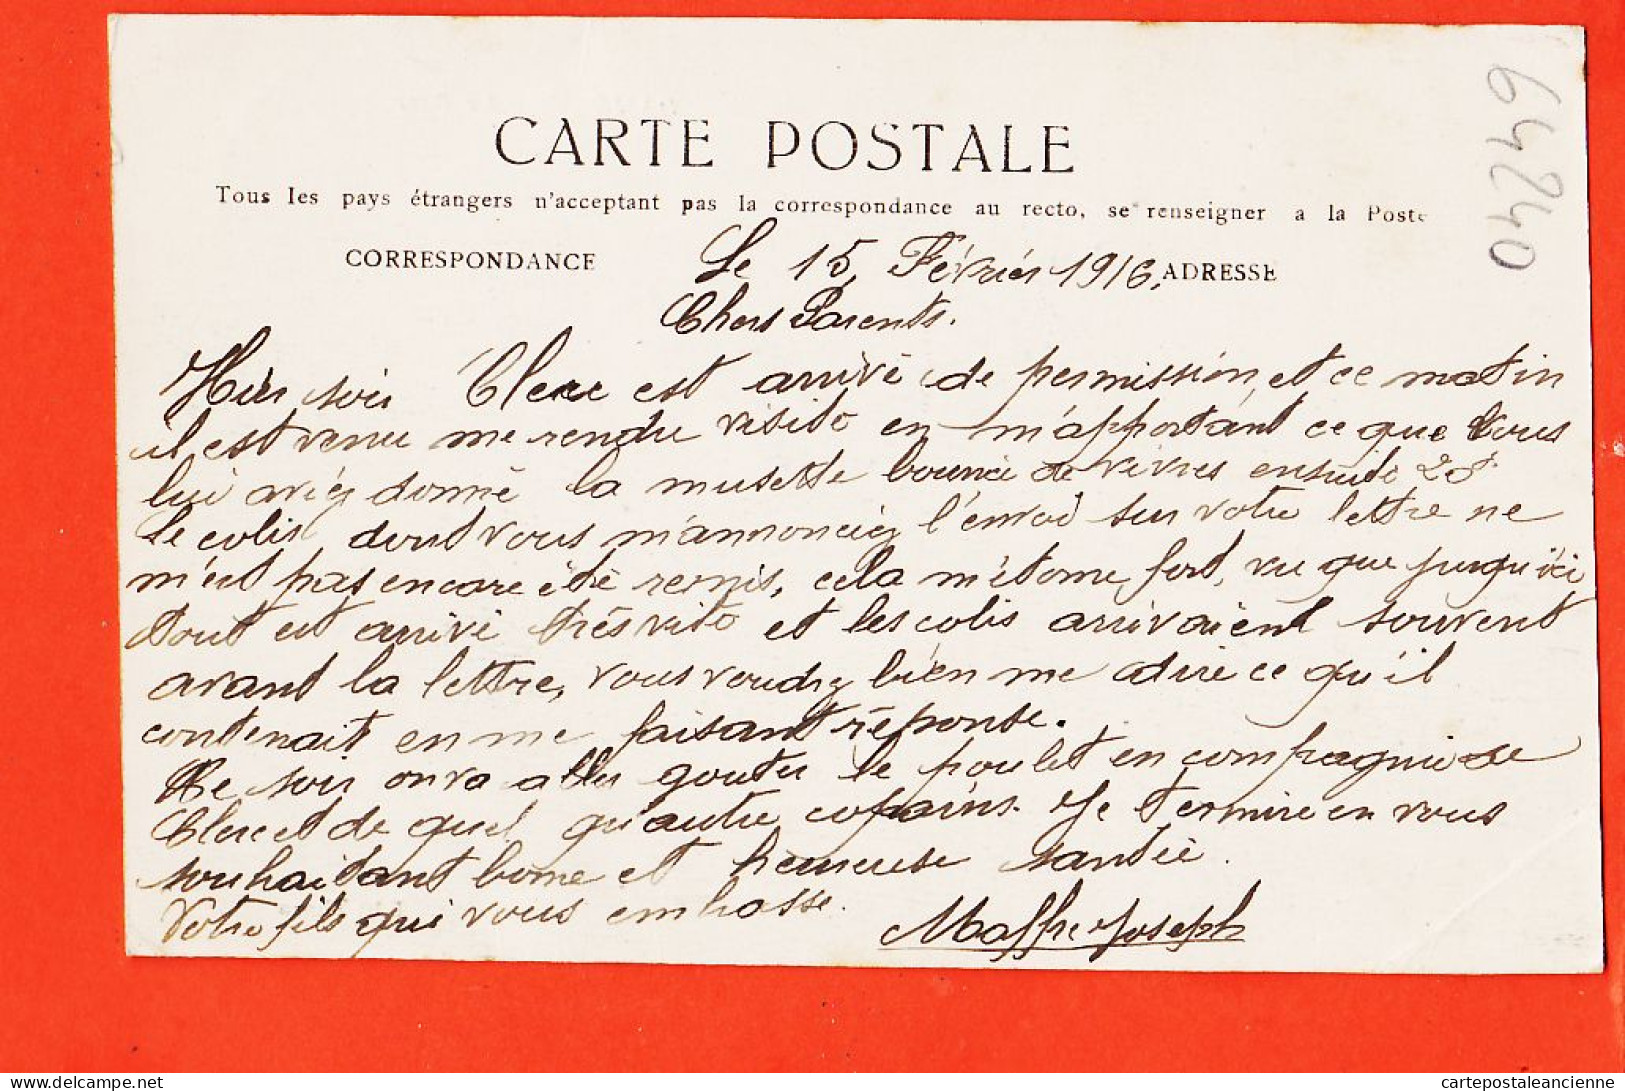 CARTE POSTALE
Tous les pays étrangers n'acceptant pas la correspondance au recto, se renseigner a la Poste
CORRESPONDANCE
Le 15, Février 1916.
ADRESSE
Chers Parents.
Hier soir Clerc est arrivé de permission, et ce matin
il est venu me rendre visite en m'apportant ce que vous
lui aviez donné la musette bourrée de vivres ensuite 20f.
le colis dont vous m'annonciez l'envoi sur votre lettre ne
m'est pas encore été remis, cela m'étonne fort, vu que jusqu'ici
tout est arrivé très vite et les colis arrivaient souvent
avant la lettre, vous voudrez bien me dire ce qu'il
contenait en me faisant réponse.
Ce soir on va aller gouter le poulet en compagnie de
Clerc et de quel qu'autre copains. Je termine en vous
souhaitant bonne et heureuse santée.
Votre fils qui vous embrasse.
Maffre Joseph
64240
cartepostaleancienne
cartepostaleancienne.com